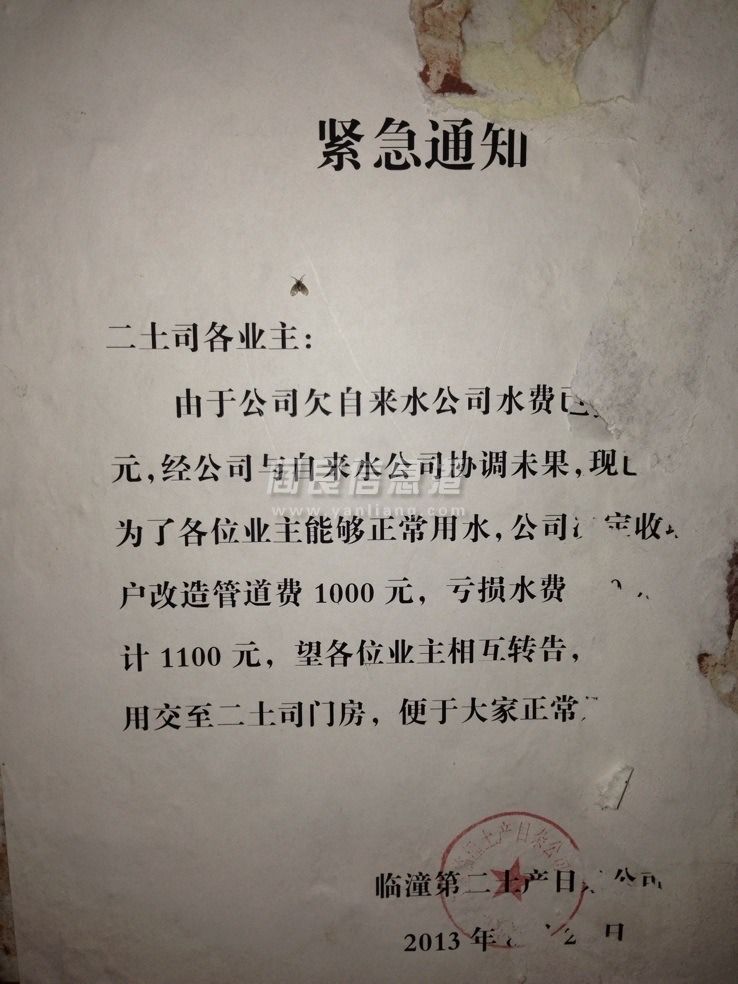 紧急通知
二土司各业主：
由于公司欠自来水公司水费已
元，经公司与自来水公司协调未果，现已
为了各位业主能够正常用水，公司决定收
户改造管道费 1000 元，亏损水费
计 1100 元，望各位业主相互转告，
用交至二土司门房，便于大家正常
临潼第二土产日 公司
2013 年 2 日
www.yanliang.com